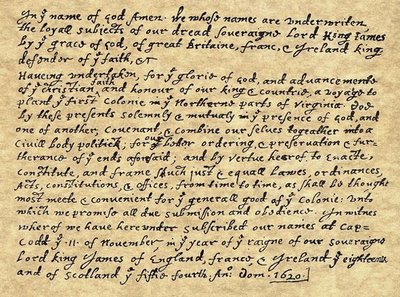 In yᵉ name of God Amen. We whose names are underwriten,
the loyall subjects of our dread soveraigne Lord King James
by yᵉ grace of God, of great Britaine, franc, & Ireland king,
defender of yᵉ faith, &c
Haveing undertaken, for yᵉ glorie of God, and advancemente
of yᵉ christian faith and honour of our king & countrie, a voyage to
plant yᵉ first colonie in yᵉ Northerne parts of Virginia. Doe
by these presents solemnly & mutualy in yᵉ presence of God, and
one of another, covenant, & combine our selves togeather into a
Civill body politick; for our better ordering, & preservation & fur=
therance of yᵉ ends aforesaid; and by vertue hearof to enacte,
constitute, and frame shuch just & equall Lawes, ordinances,
Acts, constitutions, & offices, from time to time, as shall be thought
most meete & convenient for yᵉ generall good of yᵉ Colonie: unto
which we promise all due submission and obedience. In witnes
wherof we have hereunder subscribed our names at Cap=
Codd yᵉ .11. of November, in yᵉ year of yᵉ raigne of our soveraigne
Lord king James of England, franc, & Ireland yᵉ eighteenth
and of Scotland yᵉ fiftie fourth. Anᵒ: Dom. 1620.